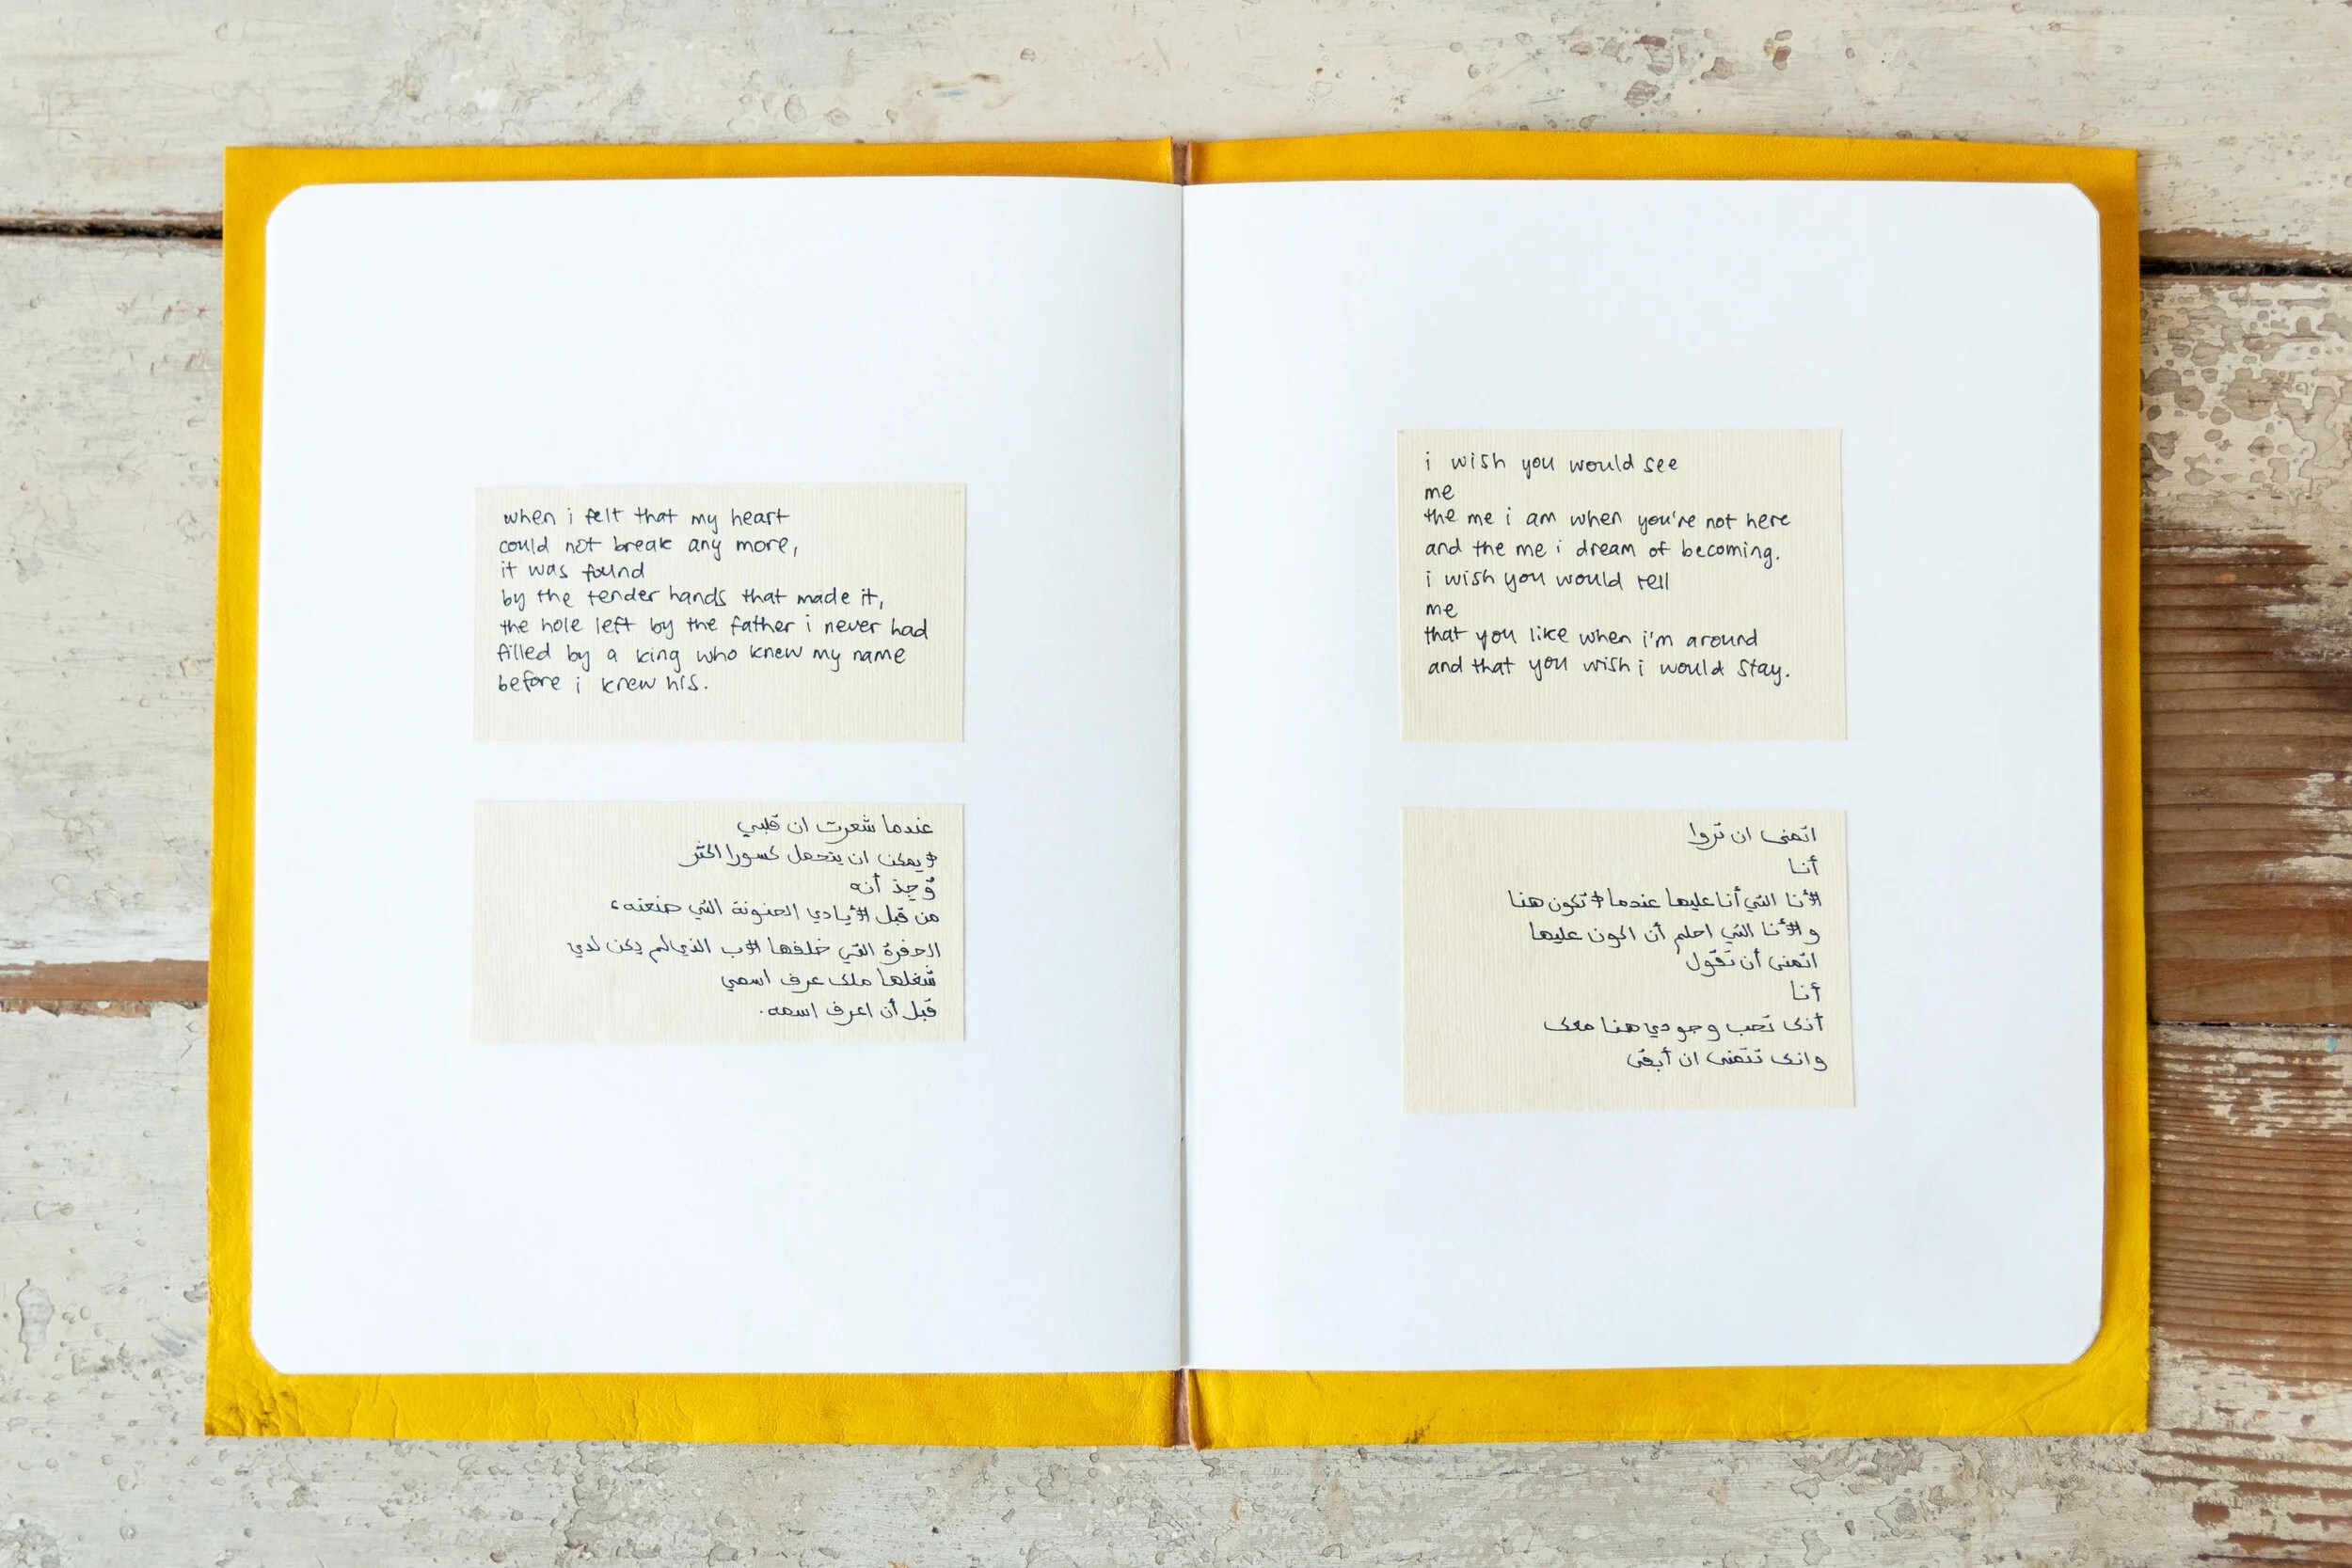 when i felt that my heart
could not break any more,
it was found
by the tender hands that made it,
the hole left by the father i never had
filled by a king who knew my name
before i knew his.
عندما شعرت ان قلبي
لا يمكن ان يتحمل كسورا اكثر
وُجد أنه
من قبل الأيادي الحنونة التي صنعته،
الحفرة التي خلفها الأب الذي لم يكن لدي
شغلها ملك عرف اسمي
قبل أن اعرف اسمه.
i wish you would see
me
the me i am when you're not here
and the me i dream of becoming.
i wish you would tell
me
that you like when i'm around
and that you wish i would stay.
اتمنى ان تروا
أنا
الأنا التي أنا عليها عندما لا تكون هنا
والأنا التي احلم أن اكون عليها
اتمنى أن تقول
أنا
أنك تحب وجودي هنا معك
وانك تتمنى ان أبقى